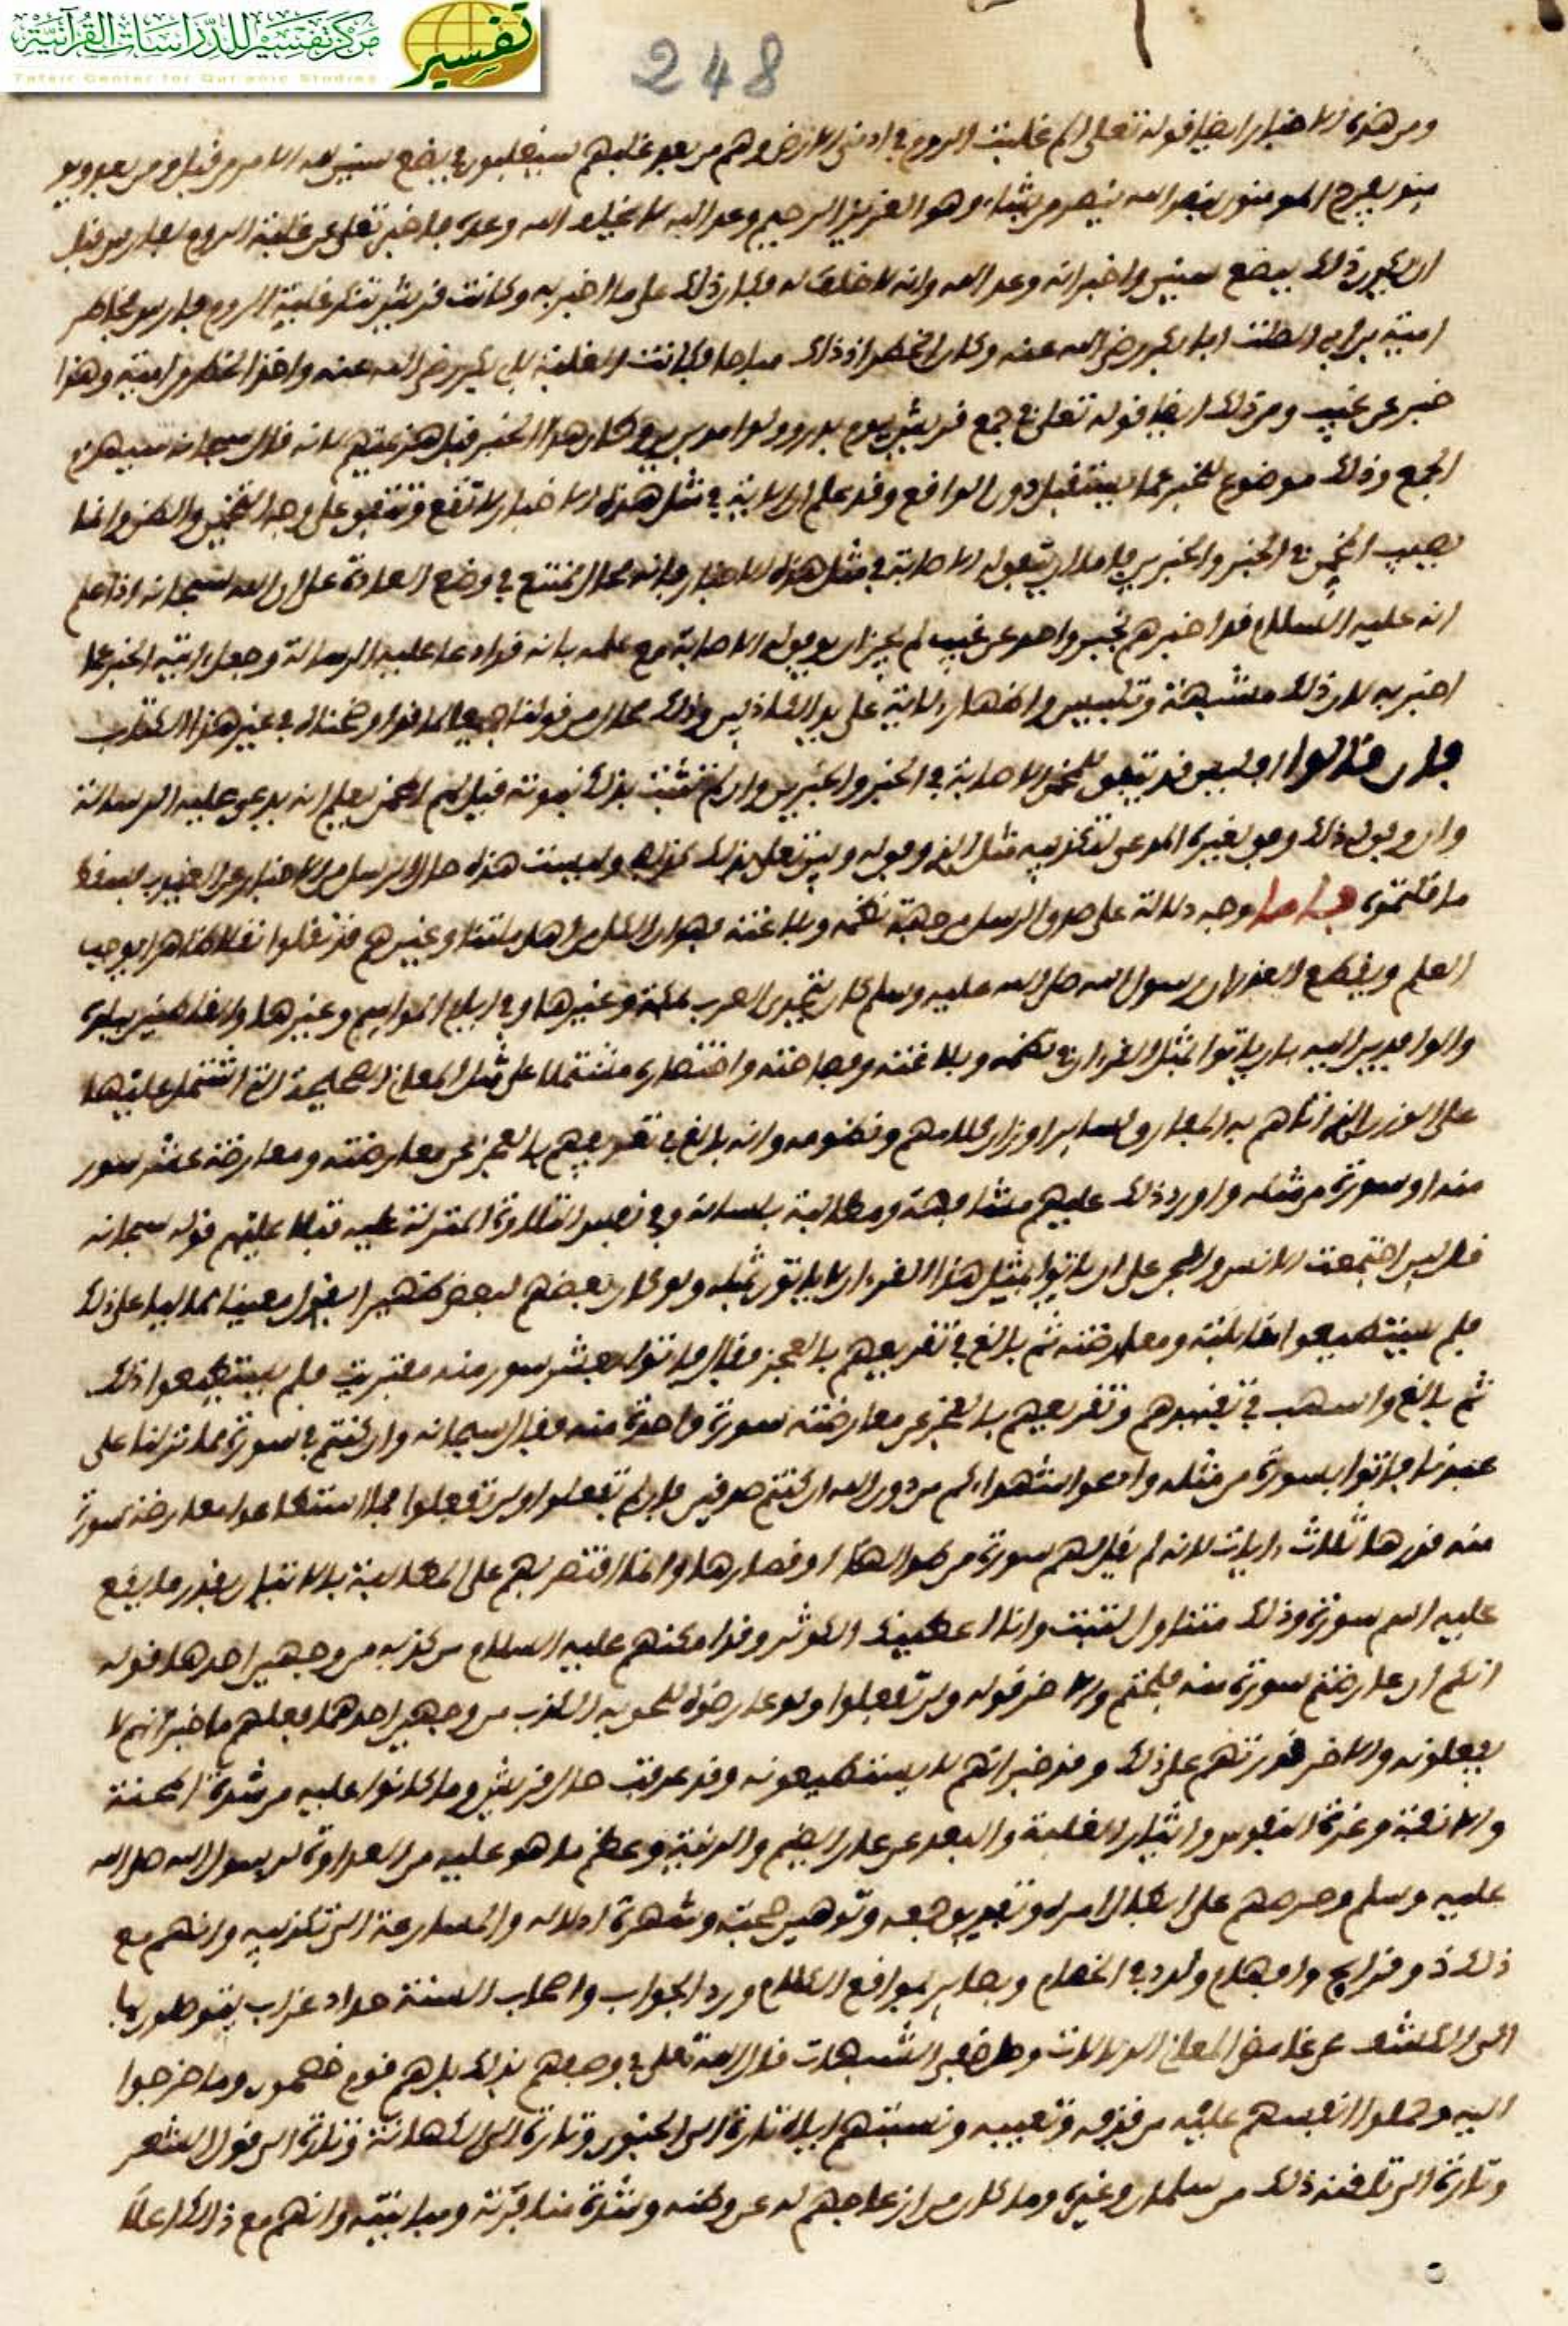 مركز تفسير للدراسات القرآنية
تفسير
Tafsir Center for Qur'anic Studies
248
ومن هذه الاخبار ايضا قوله تعالى الم غلبت الروم في ادنى الارض وهم من بعد غلبهم سيغلبون في بضع سنين لله الامر من قبل ومن بعد ويو
ميذ يفرح المومنون بنصر الله ينصر من يشاء وهو العزيز الرحيم وعد الله لا يخلف الله وعده فاخبر تعالى عن غلبة الروم لفارس قبل
ان يكون ذلك ببضع سنين واخبر انه وعد الله وانه لا خلف له فكان ذلك على ما اخبر به وكانت قريش تنكر غلبة الروم فارس فخاطر
امية بن ابي الصلت ابا بكر رضي الله عنه وكان الخطر اذ ذاك مباحا فكانت الغلبة لابي بكر رضي الله عنه واخذ الخطر من امية وهذا
خبر عن غيب ومن ذلك ايضا قوله تعالى في جمع قريش يوم بدر وولوا مدبرين وكان هذا الخبر قبل هزيمتهم لانه قال سبحانه سيهزم
الجمع وذلك موضوع للخبر عما يستقبل دون الواقع وقد علم ان الاية في مثل هذه الاخبار لا تقع وتتفق على وجه التخمين والظن وانما
يصيب المخمن في الخبر والخبرين فاما ان يتفق له الاصابة في مثل هذه الاخبار فانه محال ممتنع في وضع العادة على ان الله سبحانه اذا علم
انه عليه السلام قد اخبرهم بخبر واحد عن غيب لم يجز ان يوفق له الاصابة مع علمه بانه قد ادعا عليه الرسالة وجعل ايته الخبر عما
اخبر به لان ذلك مشبهة وتلبيس واظهار الاية على يد الكاذبين وذلك محال من قولنا جميعا لما قد اوضحناه في غير هذا الكتاب
فان قالوا افليس قد يتفق للمخمن الاصابة في الخبر والخبرين وان لم تثبت بذلك نبوته قيل لهم المخمن يعلم انه يدعي عليه الرسالة
وان وفق له ذلك وفق لغيره المدعي لتكذيبه مثل الذي وفق له وليستعلى بذلك كذبه وليست هذه حال الرسل من الاخبار عن الغيوب فسقط
ما قلتموه فاما وجه دلالة على صدق الرسل من جهة نظمه وبلاغته فهو ان الكل من اهل ملتنا وغيرهم قد نقلوا نقلا ظاهرا يوجب
العلم ويقطع العذر ان رسول الله صلى الله عليه وسلم كان يتحدى العرب بمكة وغيرها وفي ايام المواسم وغيرها والقاطنين ببلده
والوافدين اليه بان ياتوا بمثل القرءان في نظمه وبلاغته وفصاحته واختصاره مشتملا على مثل المعاني الصحيحة التي اشتمل عليها
على الوزن الذي اتاهم به المفارق لساير اوزان كلامهم ونظومه وانه بالغ في تقريعهم بالعجز عن معارضته ومعارضة عشر سور
منه او سورة من مثله واورد ذلك عليهم مشافهة ومطالبة بلسانه وفي نفس التلاوة المنزلة عليه فتلا عليهم قوله سبحانه
قل لين اجتمعت الانس والجن على ان ياتوا بمثل هذا القرءان لا ياتون بمثله ولو كان بعضهم لبعض ظهيرا يقول معينا مماليا على ذلك
فلم يستطيعوا مقابلته ومعارضته ثم بالغ في تقريعهم بالعجز فقال فاتوا بعشر سور منه مفتريت فلم يستطيعوا ذلك
ثم بالغ واسهب في تفنيدهم وتقريعهم بالعجز عن معارضته سورة واحدة منه فقال سبحانه وان كنتم في سورة مما نزلنا على
عبدنا فاتوا بسورة من مثله وادعوا شهداءكم من دون الله ان كنتم صدقين فان لم تفعلوا ولن تفعلوا فما استطاعوا معارضة سورة
منه قدرها ثلاث ءايات لانه لم يقل لهم سورة من طوالها او قصارها وانما اقتصر بهم على المطالبة بالاتيان بقدر ما يقع
عليه اسم سورة وذلك متناول لتبت وانا اعطينك الكوثر وقد امكنهم عليه السلام من كذبه من وجهين احدهما قوله
انكم ان عارضتم سورة منه فلجتم والاخر قوله ولن تفعلوا ولو عارضوه للحق به الكذب من وجهين احدهما فعلهم ما خبر انهم لا
يفعلونه والاخر قدرتهم على ذلك وقد خبر انهم لا يستطيعونه وقد عرفت حال قريش وما كانوا عليه من شدة الحمية
والانفة وعزة النفوس وايثار الغلبة والبعد عن عار الضيم والدنية وعظم ما هو عليه من العداوة لرسول الله صلى الله
عليه وسلم وحرصهم على ابطال امره وتفريق جمعه وتوهين حجته وشهرة ادلاله والمسارعة الى تكذيبه وانهم مع
ذلك ذوو قرائح وافهام ولدد في الخصام وبصاير بمواقع الكلام ورد الجواب واصحاب السنة حداد عذاب يتوصلون بها
الى الكشف عن غامض المعاني والدلالات وحل ضفير الشبهات قال الله تعالى في وصفهم بذلك بل هم قوم خصمون وما خرجوا
اليه وحملوا انفسهم عليه من قذفه وتعييبه ونسبتهم اياه تارة الى الجنون وتارة الى الكهانة وتارة الى قول الشعر
وتارة الى تلقنه ذلك من سلمان وغيره وما كان من ازعاجهم له عن وطنه وشدة منافرته ومباينته وانهم مع ذلك اعلا